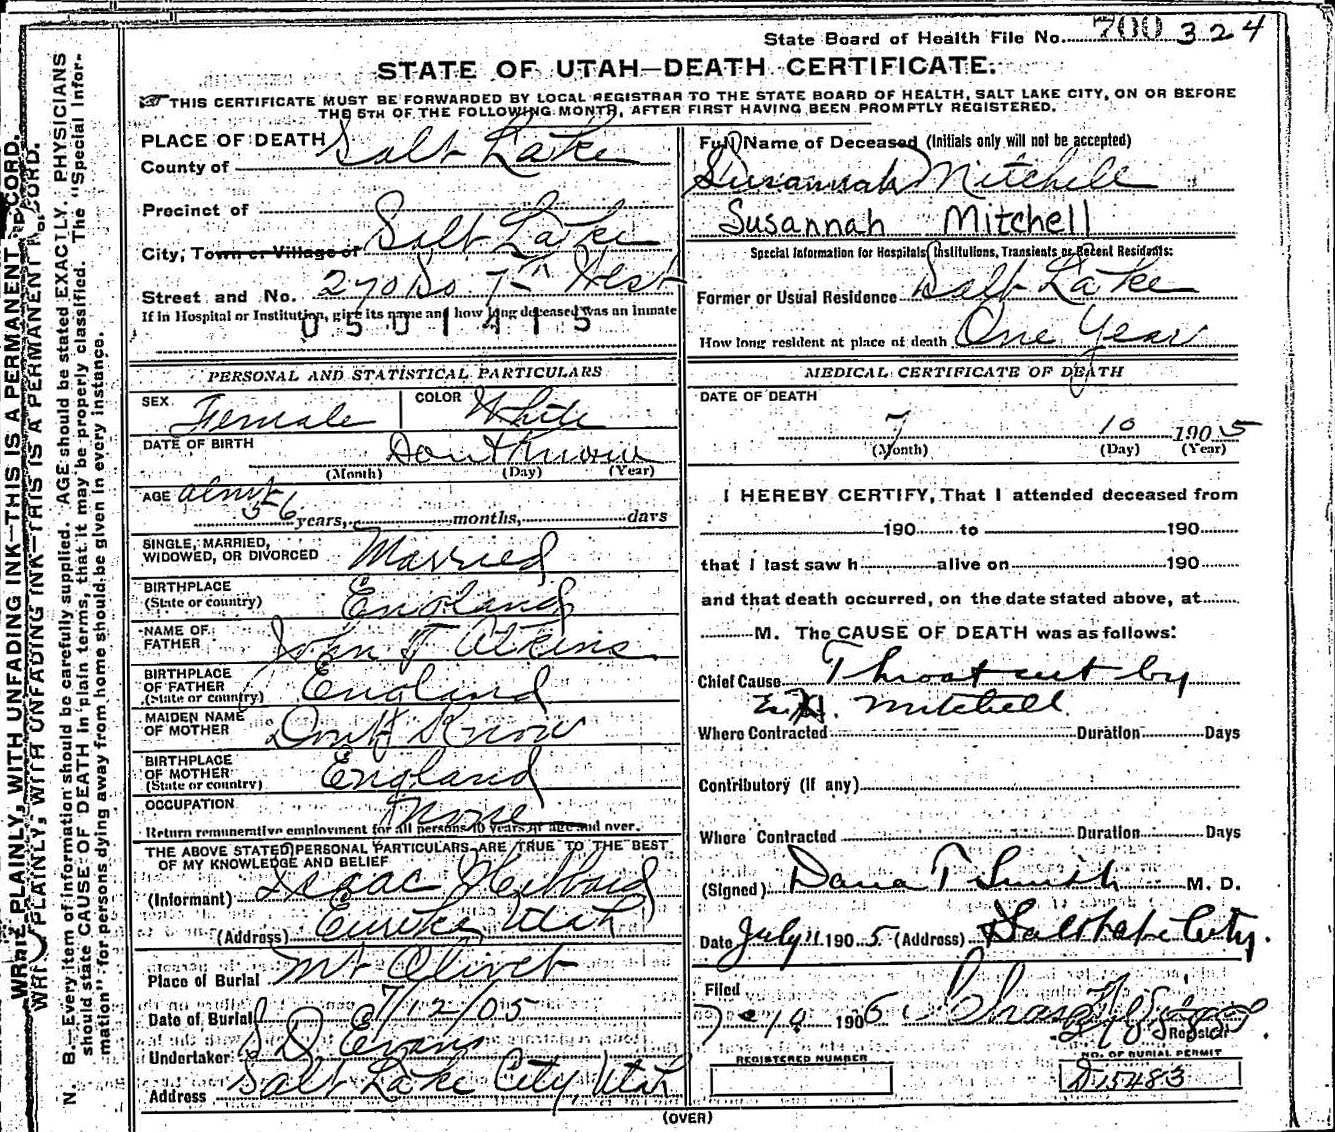 State Board of Health File No. 700 324
STATE OF UTAH—DEATH CERTIFICATE.
THIS CERTIFICATE MUST BE FORWARDED BY LOCAL REGISTRAR TO THE STATE BOARD OF HEALTH, SALT LAKE CITY, ON OR BEFORE
THE 5TH OF THE FOLLOWING MONTH, AFTER FIRST HAVING BEEN PROMPTLY REGISTERED.
WRITE PLAINLY, WITH UNFADING INK—THIS IS A PERMANENT RECORD.
N. B.—Every item of information should be carefully supplied. AGE should be stated EXACTLY. PHYSICIANS
should state CAUSE OF DEATH in plain terms, that it may be properly classified. The "Special Infor-
mation" for persons dying away from home should be given in every instance.
PLACE OF DEATH
County of Salt Lake
Precinct of
City, Town or Village of Salt Lake
Street and No. 270 So. 7th West
If in Hospital or Institution, give its name and how long deceased was an inmate
0501415
PERSONAL AND STATISTICAL PARTICULARS
SEX Female COLOR White
DATE OF BIRTH Dont Know
(Month) (Day) (Year)
AGE about
56 years, months, days
SINGLE, MARRIED,
WIDOWED, OR DIVORCED Married
BIRTHPLACE
(State or country) England
NAME OF
FATHER John T Atkins
BIRTHPLACE
OF FATHER
(State or country) England
MAIDEN NAME
OF MOTHER Don't Know
BIRTHPLACE
OF MOTHER
(State or country) England
OCCUPATION None
Return remunerative employment for all persons 10 years of age and over.
THE ABOVE STATED PERSONAL PARTICULARS ARE TRUE TO THE BEST
OF MY KNOWLEDGE AND BELIEF
(Informant) Isaac Hibbard
(Address) Eureka, Utah
Place of Burial Mt Olivet
Date of Burial 7/12/05
Undertaker S D Evans
Address Salt Lake City, Utah
Full Name of Deceased (Initials only will not be accepted)
Susannah Mitchell
Susannah Mitchell
Special Information for Hospitals, Institutions, Transients or Recent Residents:
Former or Usual Residence Salt Lake
How long resident at place of death One Year
MEDICAL CERTIFICATE OF DEATH
DATE OF DEATH
7 10 1905
(Month) (Day) (Year)
I HEREBY CERTIFY, That I attended deceased from
190 to 190
that I last saw h alive on 190
and that death occurred, on the date stated above, at
M. The CAUSE OF DEATH was as follows:
Chief Cause Throat cut by
Mitchell
Where Contracted Duration Days
Contributory (if any)
Where Contracted Duration Days
(Signed) Dana T Smith M. D.
Date July 11 1905 (Address) Salt Lake City.
Filed
190
Registrar
REGISTERED NUMBER
NO. OF BURIAL PERMIT
D15483
(OVER)